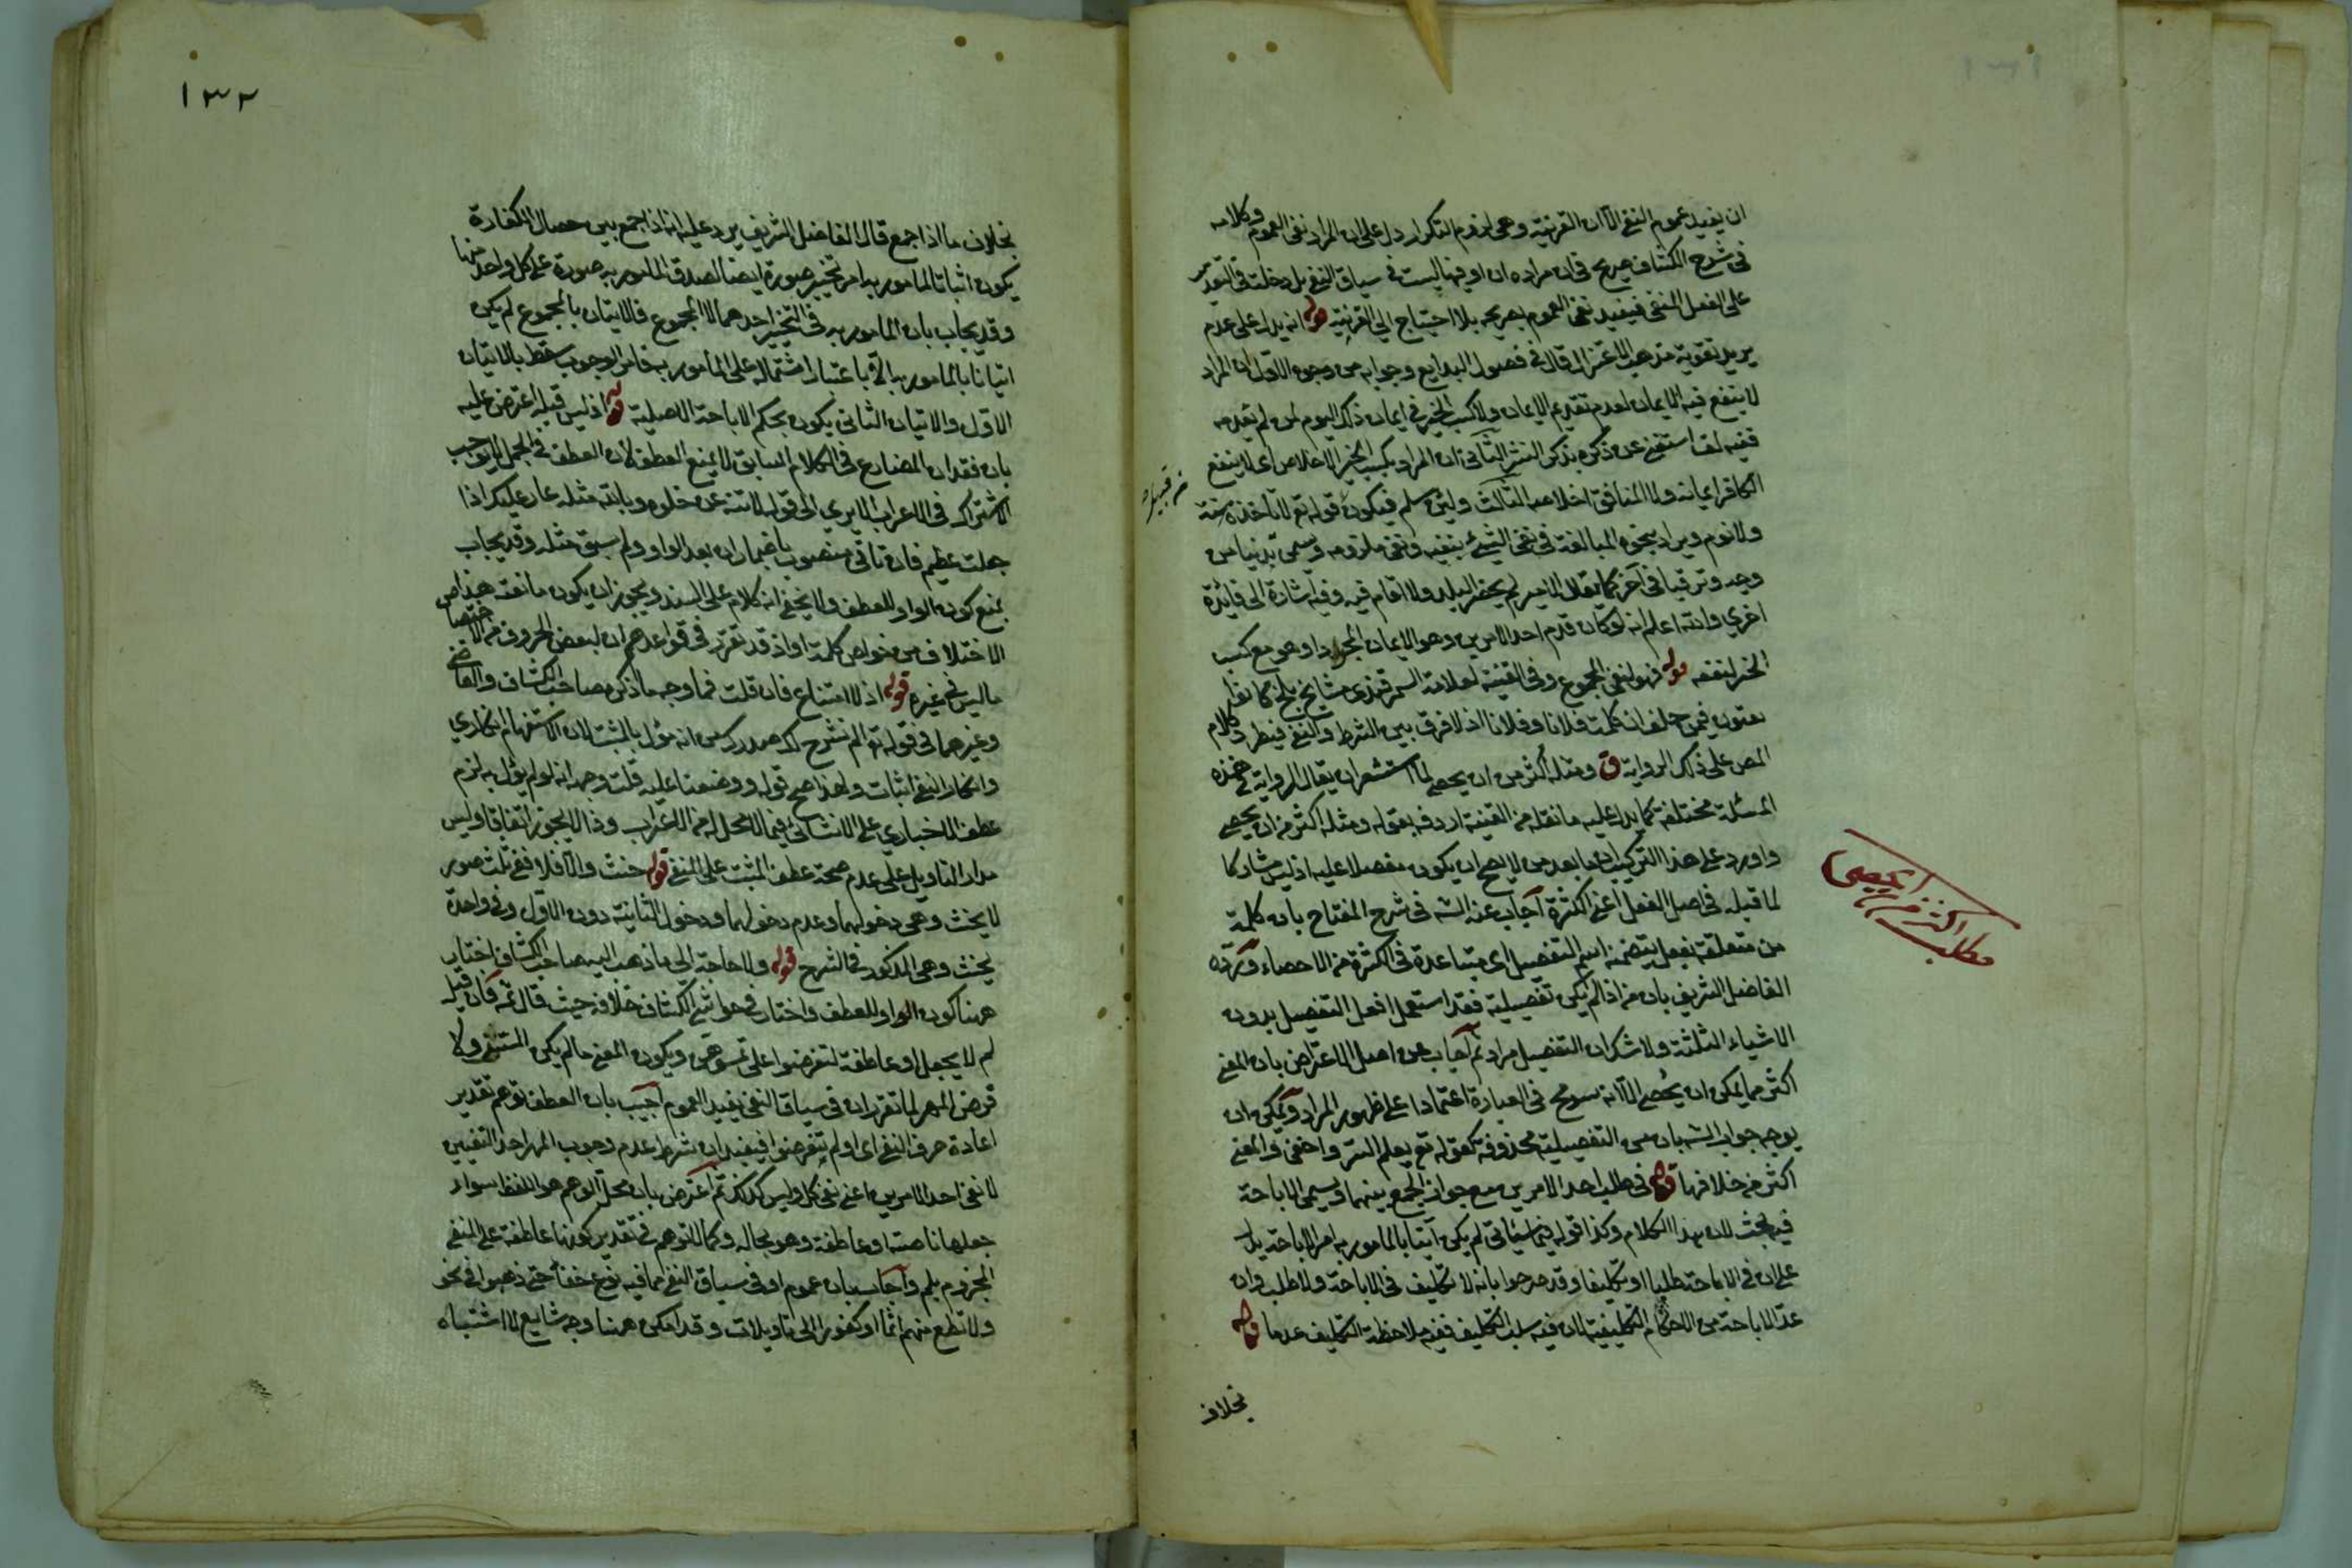 ان يفيد عموم النفى الا ان القرينة وهى لزوم التكرار دل على ان المراد نفى العموم وكلامه
فى شرح الكشاف صريح فى ان مراده ان او فيها ليست فى سياق النفى بل دخلت فى التقدير
على الفعل المنفى فيفيد نفى العموم بصريحه بلا احتياج الى القرينة قوله انه يدل على عدم
يريد تقوية مذهب الاعتزال قال فى فصول البدايع وجوابه من وجوه الاول ان المراد
لا ينفع فيه الايمان لعدم تقديم الايمان ولا كسب الخير فى ايمان ذلك اليوم لمن لم يقدمه
ففيه لف استغنى عن ذكره بذكر النشر الثانى ان المراد بكسب الخير الاخلاص اى لا ينفع
الكافر ايمانه ولا المنافق اخلاصه الثالث ولئن سلم فيكون قوله تع لا تأخذه سنة
ولا نوم ويراد بنحوه المبالغة فى نفى الشئ بنفيه ونفى ملزومه ويسمى تدنيا من
وجه وترقيا فى آخر كما يقال الامير لم يحضر البلد ولا اقام فيه وفيه اشارة الى فائدة
اخرى والله اعلم انه لو كان قدم احد الامرين وهو الايمان المجرد او هو مع كسب
الخير لنفعه قوله فهو لنفى المجموع وفى القنية لعلامة السمرقندى مشايخ بلخ كانوا
يفتون فيمن حلف ان كلمت فلانا وفلانا اذ لا فرق بين الشرط والنفى فينظر وكلام
المص على ذلك الرواية ق ومثله اكثر من ان يحصى لما استشعر ان يقال الرواية فى هذه
المسئلة مختلفة كما يدل عليه ما نقله من القنية اردفه بقوله ومثله اكثر من ان يحصى
واورد على هذا التركيب ان ما بعد من لا يصح ان يكون مفصلا عليه اذ ليس مشاركا
لما قبله فى اصل الفعل اعنى الكثرة اجاب عنه الش فى شرح المفتاح بان كلمة
من متعلقة بفعل يتضمنه اسم التفضيل اى متباعدة فى الكثرة من الاحصاء ورده
الفاضل الشريف بان من اذا لم يكن تفصيلية فقد استعمل افعل التفضيل بدون
الاشياء الثلثة ولا شك ان التفضيل مراد ثم اجاب عن اصل الاعتراض بان المعنى
اكثر مما يمكن ان يحصى الا انه سومح فى العبارة اعتمادا على ظهور المراد ويمكن ان
يوجه جواب الش بان من التفصيلية محذوفة كقوله تع يعلم السر واخفى والمعنى
اكثر من خلافها قوله فى طلب احد الامرين مع جواز الجمع بينهما ويسمى الاباحة
فيه بحث لان هذا الكلام وكذا قوله فيما سيأتى لم يكن آتيا بالمأمور به امر الاباحة يدل
على ان فى الاباحة طلبا او تكليفا وقد صرحوا بانه لا تكليف فى الاباحة ولا طلب وان
عد الاباحة من الاحكام التكليفية لان فيه سلب التكليف ففيه ملاحظة التكليف عدما قوله
بخلاف
مطلب اكثر من ان يحصى
١٣٢
بخلاف ما اذا جمع قال الفاضل الشريف يرد عليه انه اذا جمع بين خصال الكفارة
يكون اتيانا لمامور به امر تخيير صورة ايضا لصدق المامور به صورة على كل واحد منها
وقد يجاب بان المامور به فى التخيير احدهما لا المجموع فالاتيان بالمجموع لم يكن
اتيانا بالمامور به الا باعتبار اشتماله على المأمور به فامر الوجوب سقط بالاتيان
الاول والاتيان الثانى يكون بحكم الاباحة الاصلية قوله اذ ليس قبله اعترض عليه
بان فقدان المضارع فى الكلام السابق لا يمنع العطف لان العطف فى الجمل لا يوجب
الاشتراك فى الاعراب الا يرى الى قوله لا تنه عن خلق وتأتى مثله عار عليك اذا
فعلت عظيم فان تأتى منصوب باضمار ان بعد الواو ولم يسبق مثله وقد يجاب
بمنع كون الواو للعطف ولا يخفى انه كلام على السند ويجوز ان يكون مانعة هذا من
الاختلاف من خواص كلمة او اذ قد تقرر فى قواعدهم ان لبعض الحروف من الاختصاص
ما ليس فى غيره قوله اذ لا امتناع فان قلت فما وجه ما ذكره صاحب الكشاف والقاضى
وغيرهما فى قوله تع الم نشرح لك صدرك من انه مؤل بالمثبت لان الاستفهام انكارى
وانكار النفى اثبات ولهذا صح قوله ووضعنا عليه قلت وجهه انه لو لم يؤل به لزم
عطف الاخبارى على الانشائى فيما لا محل له من الاعراب وذا لا يجوز اتفاقا وليس
مدار التاويل على عدم صحة عطف المثبت على المنفى قوله حنث والا فلا ففى ثلث صور
لا يحنث وهى دخولهما وعدم دخولهما ودخول الثانية دون الاول وفى واحدة
يحنث وهى المذكور فى الشرح قوله ولا حاجة الى ما ذهب اليه صاحب الكشاف اختار
ههنا كون الواو للعطف واختار فى حواشى الكشاف خلافه حيث قال ثمه فان قيل
لم لا يجعل او عاطفة لتفرضوا على تمسوهن ويكون المعنى ما لم يكن المسيس ولا
فرض المهر لما تقرر ان فى سياق النفى يفيد العموم اجيب بان العطف توهم تقدير
اعادة حرف النفى اى او لم تفرضوا فيفيد ان شرط عدم وجوب المهر احد النفيين
لا نفى احد الامرين اعنى نفى كل وليس كذلك ثم اعترض بان محل الوهم هو اللفظ سواء
جعلها ناصبة او عاطفة وهو بحاله وكمال التوهم فى تقدير كونها عاطفة على المنفى
المجزوم بلم واجاب بان عموم او فى سياق النفى مما فيه نوع خفأ حتى ذهبوا فى نحو
ولا تطع منهم آثما او كفورا الى تاويلات وقد امكن ههنا وجه شايع لا اشتباه